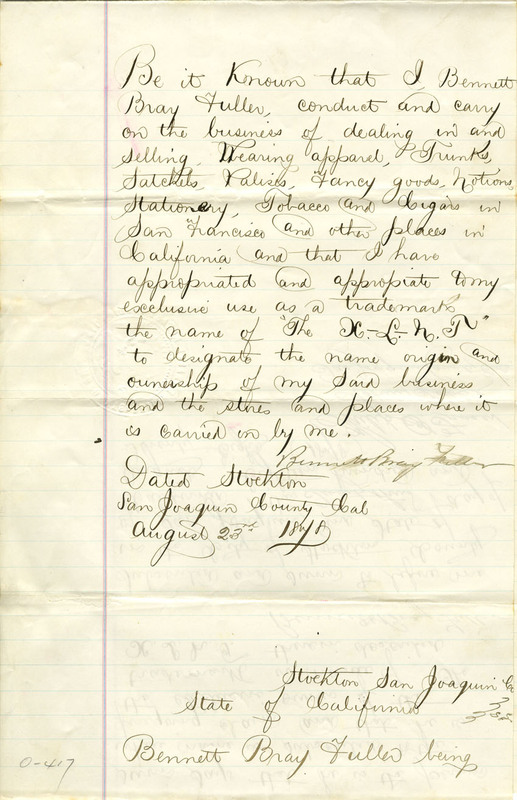 Be it Known that I Bennett
Bray Fuller, conduct and carry
on the business of dealing in and
selling, Wearing apparel, Trunks,
Satchels, Valises, Fancy goods, Notions,
Stationery, Tobacco and Cigars in
San Francisco and other places in
California and that I have
appropriated and appropiate to my
exclusive use as a trademark
the name of "The X-L-N.T"
to designate the name origin and
ownership of my said business
and the stores and places where it
is carried on by me.
Bennett Bray Fuller
Dated Stockton
San Joaquin County Cal
August 23rd 1878
Stockton San Joaquin Co
State of California } ss.
Bennett Bray Fuller being
0-417